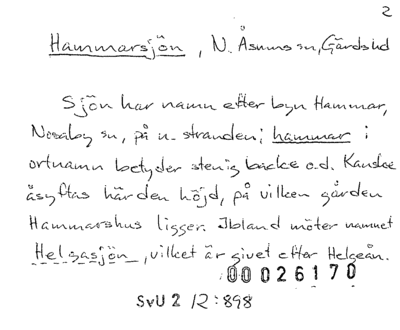 2
Hammarsjön, N. Åsums sn, Gärds hd
Sjön har namn efter byn Hammar,
Nosaby sn, på n. stranden; hammar i
ortnamn betyder stenig backe o.d. Kanske
åsyftas här den höjd, på vilken gården
Hammarshus ligger. Ibland möter namnet
Helgasjön, vilket är givet efter Helgeån.
00026170
SvU 2 12:898